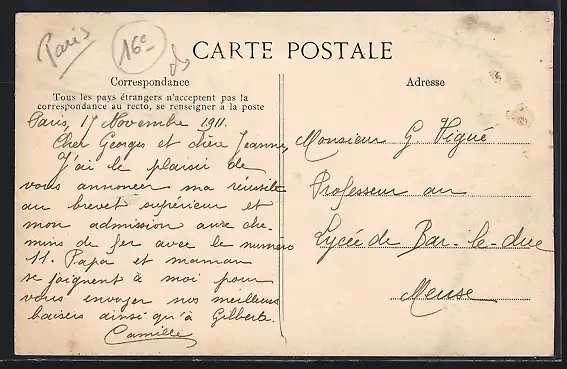 Paris
16e
CARTE POSTALE
Correspondance
Tous les pays étrangers n'acceptent pas la
correspondance au recto, se renseigner à la poste
Paris, 17 Novembre 1911.
Cher Georges et chère Jeanne,
J'ai le plaisir de
vous annoncer ma réussite
au brevet supérieur et
mon admission aux che-
mins de fer avec le numéro
11. Papa et maman
se joignent à moi pour
vous envoyer nos meilleurs
baisers ainsi qu'à Gilberte.
Camille
Adresse
Monsieur G Vigué
Professeur au
Lycée de Bar-le-duc
Meuse